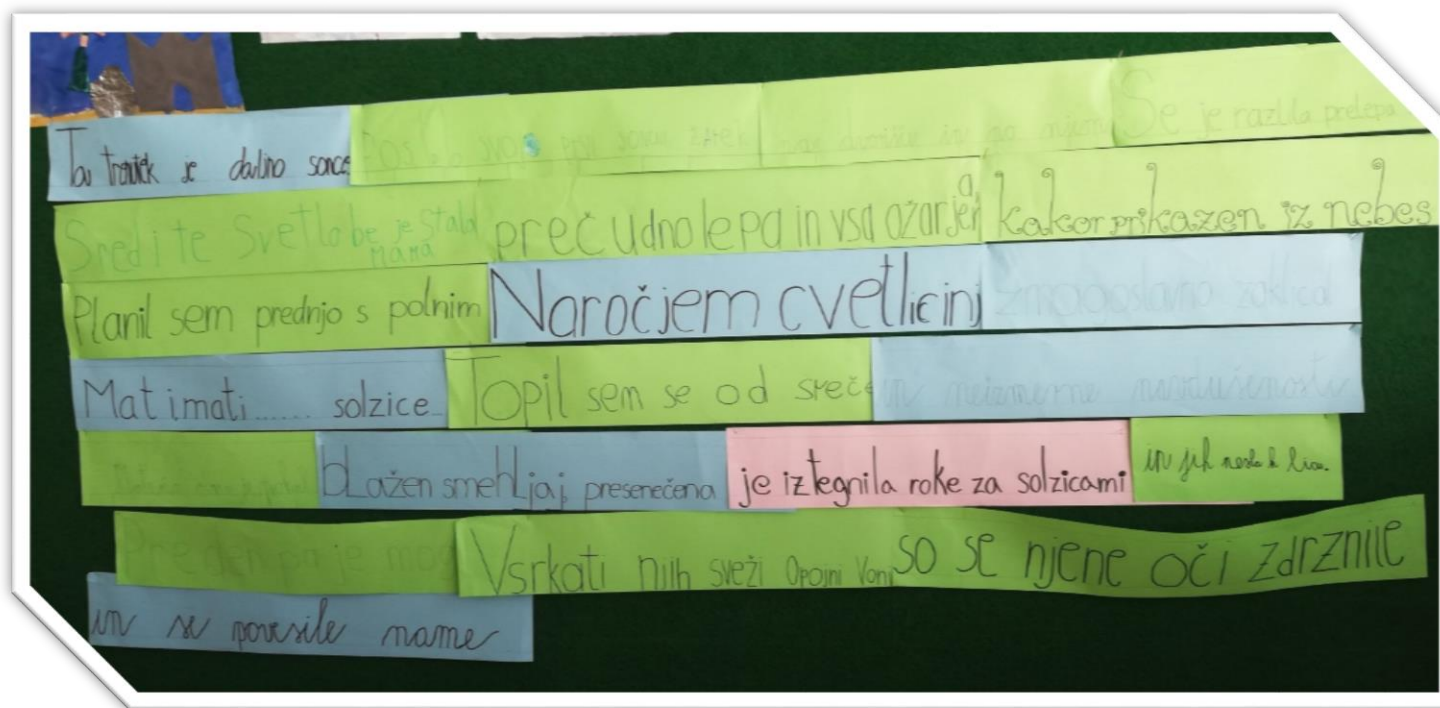 Ta trenutek je daljno sonce Se je razlila prelepa
Sredi te Svetlobe je stala mama prečudno lepa in vsa ožarjena, kakor prikazen iz nebes
Planil sem prednjo s polnim Naročjem cvetlic in zmagoslavno zaklical
Mati mati...... solzice Topil sem se od sreče in neizmerne navdušenosti
bLažen smehLjaj presenečena je iztegnila roke za solzicami in jih nesla k licu.
Preden pa je mog Vsrkati njih sveži Opojni Vonj so se njene oči zdrznile
in se povesile name